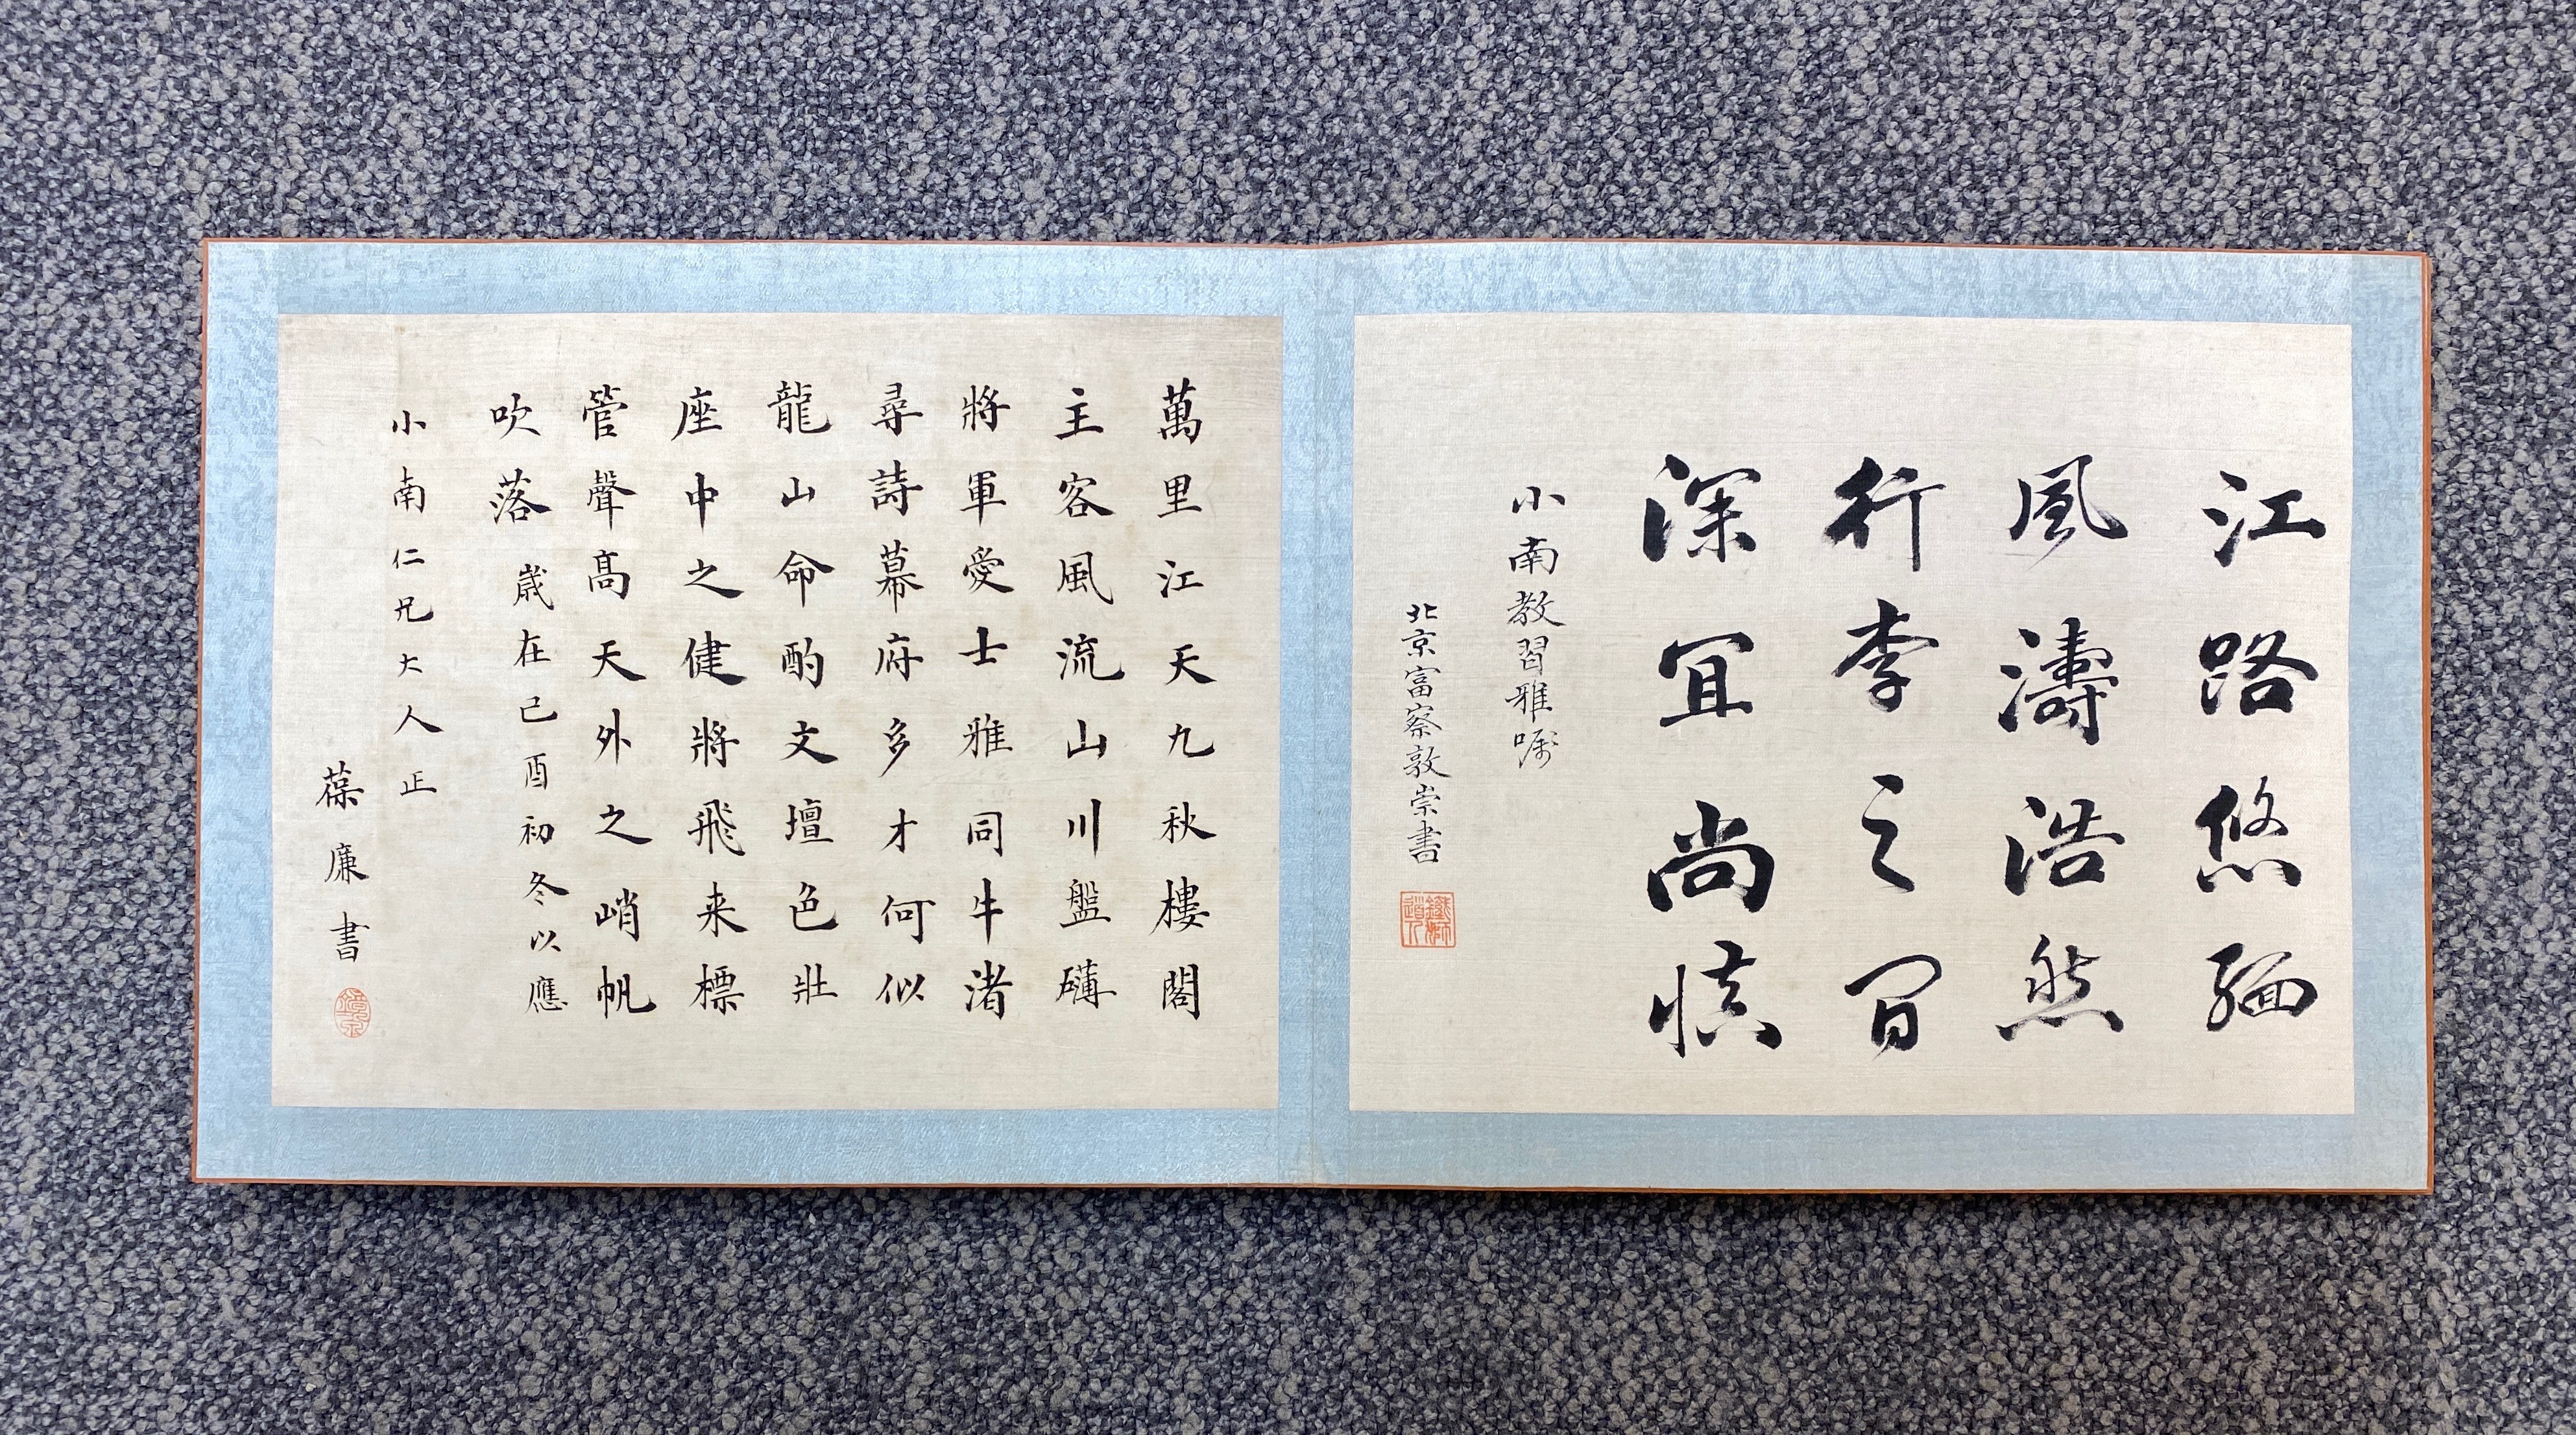 江路悠緬
風濤浩然
行李之間
深宜尚慎
小南教習雅嘱
北京富察敦崇書
鐵獅道人
萬里江天九秋樓閣
主容風流山川盤礴
將軍愛士雅同牛渚
尋詩幕府多才何似
龍山命酌文壇色壯
座中之健將飛来標
管聲高天外之峭帆
吹落歲在己酉初冬以應
小南仁兄大人正
葆廉書